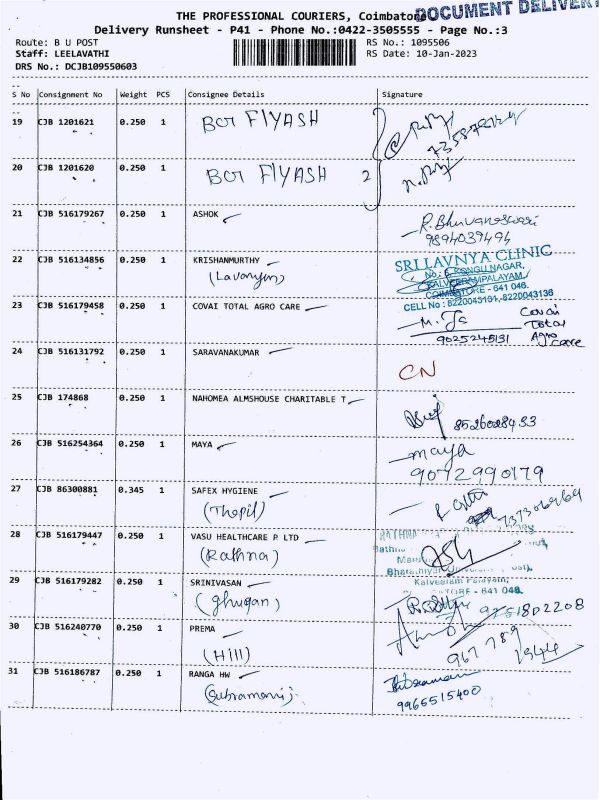 THE PROFESSIONAL COURIERS, Coimbatore
DOCUMENT DELIVERY
Delivery Runsheet - P41 - Phone No.:0422-3505555 - Page No.:3
Route: B U POST
Staff: LEELAVATHI
DRS No.: DCJB109550603
RS No.: 1095506
RS Date: 10-Jan-2023
S No Consignment No Weight PCS Consignee Details Signature
19 CJB 1201621 0.250 1 FlYASH
20 CJB 1201620 0.250 1 FlYASH 2
21 CJB 516179267 0.250 1 ASHOK R. Bhuvaneswari
9894039494
22 CJB 516134856 0.250 1 KRISHANMURTHY
(Lavanya)
SRI LAVNYA CLINIC
KONGU NAGAR,
KALVEERAMPALAYAM,
COIMBATORE - 641 046.
CELL No : 8220043191, 8220043136
23 CJB 516179458 0.250 1 COVAI TOTAL AGRO CARE
Covai
Total
Agro
care
9025245131
24 CJB 516131792 0.250 1 SARAVANAKUMAR CN
25 CJB 174868 0.250 1 NAHOMEA ALMSHOUSE CHARITABLE T
8526028433
26 CJB 516254364 0.250 1 MAYA maya
9072990179
27 CJB 86300881 0.345 1 SAFEX HYGIENE
28 CJB 516179447 0.250 1 VASU HEALTHCARE P LTD
(Rathna)
29 CJB 516179282 0.250 1 SRINIVASAN
(Ghugan)
Kalveeram Palayam,
641 046.
30 CJB 516240770 0.250 1 PREMA
(Hill)
967 789
1944
31 CJB 516186787 0.250 1 RANGA HW
(Subramani)
9965515400